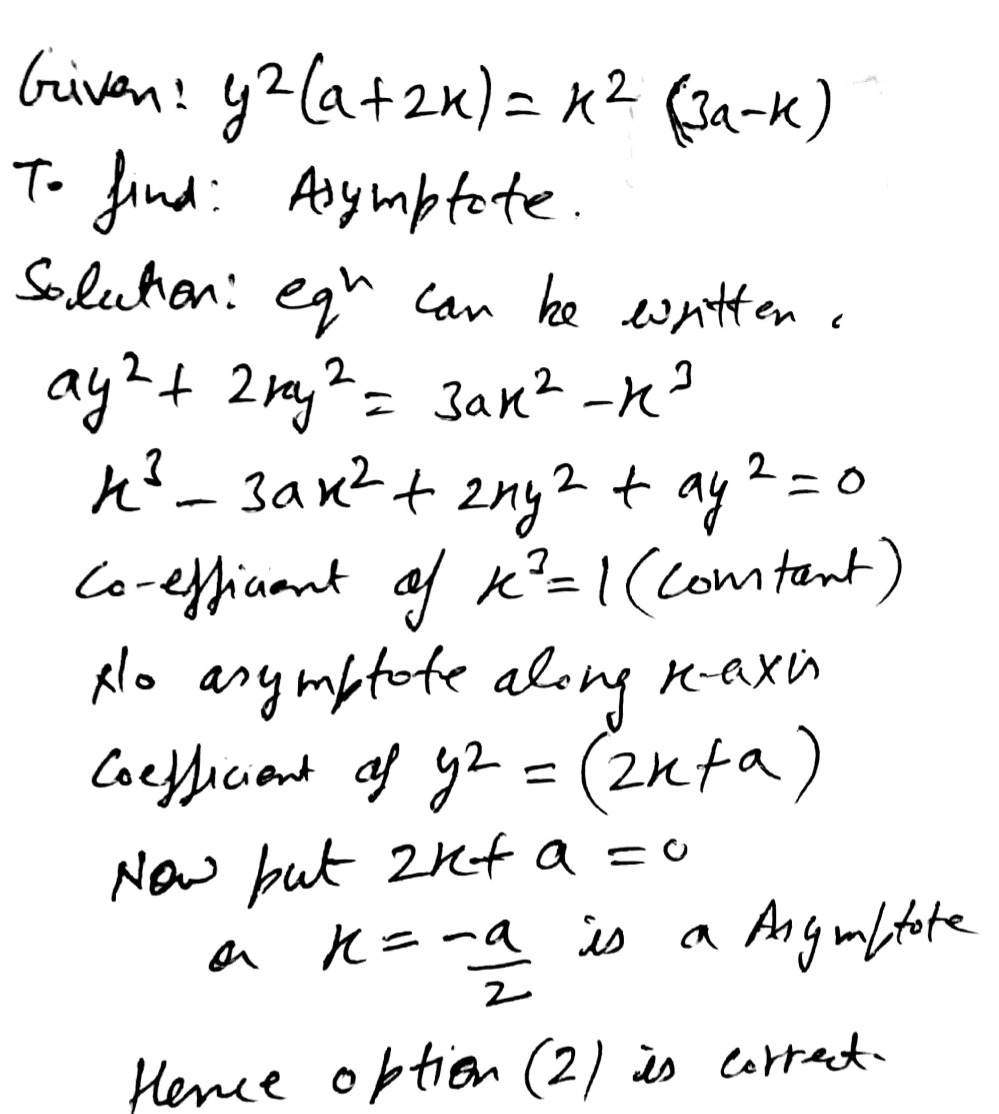 Given: y²(a+2x) = x² (3a-x)
To find: Asymptote.
Solution: eqⁿ can be written.
ay² + 2xy² = 3ax² - x³
x³ - 3ax² + 2xy² + ay² = 0
Co-efficient of x³ = 1 (constant)
No asymptote along x-axis
Coefficient of y² = (2x+a)
Now put 2x + a = 0
or x = -a/2 is a Asymptote
Hence option (2) is correct.